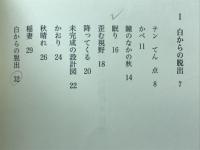 I 白からの脱出 7
テン てん 点 8
かべ 11
瞳のなかの秋 14
眠り 16
歪む視野 18
降ってくる 20
未完成の設計図 22
かおり 24
秋晴れ 26
稲妻 29
白からの脱出 32